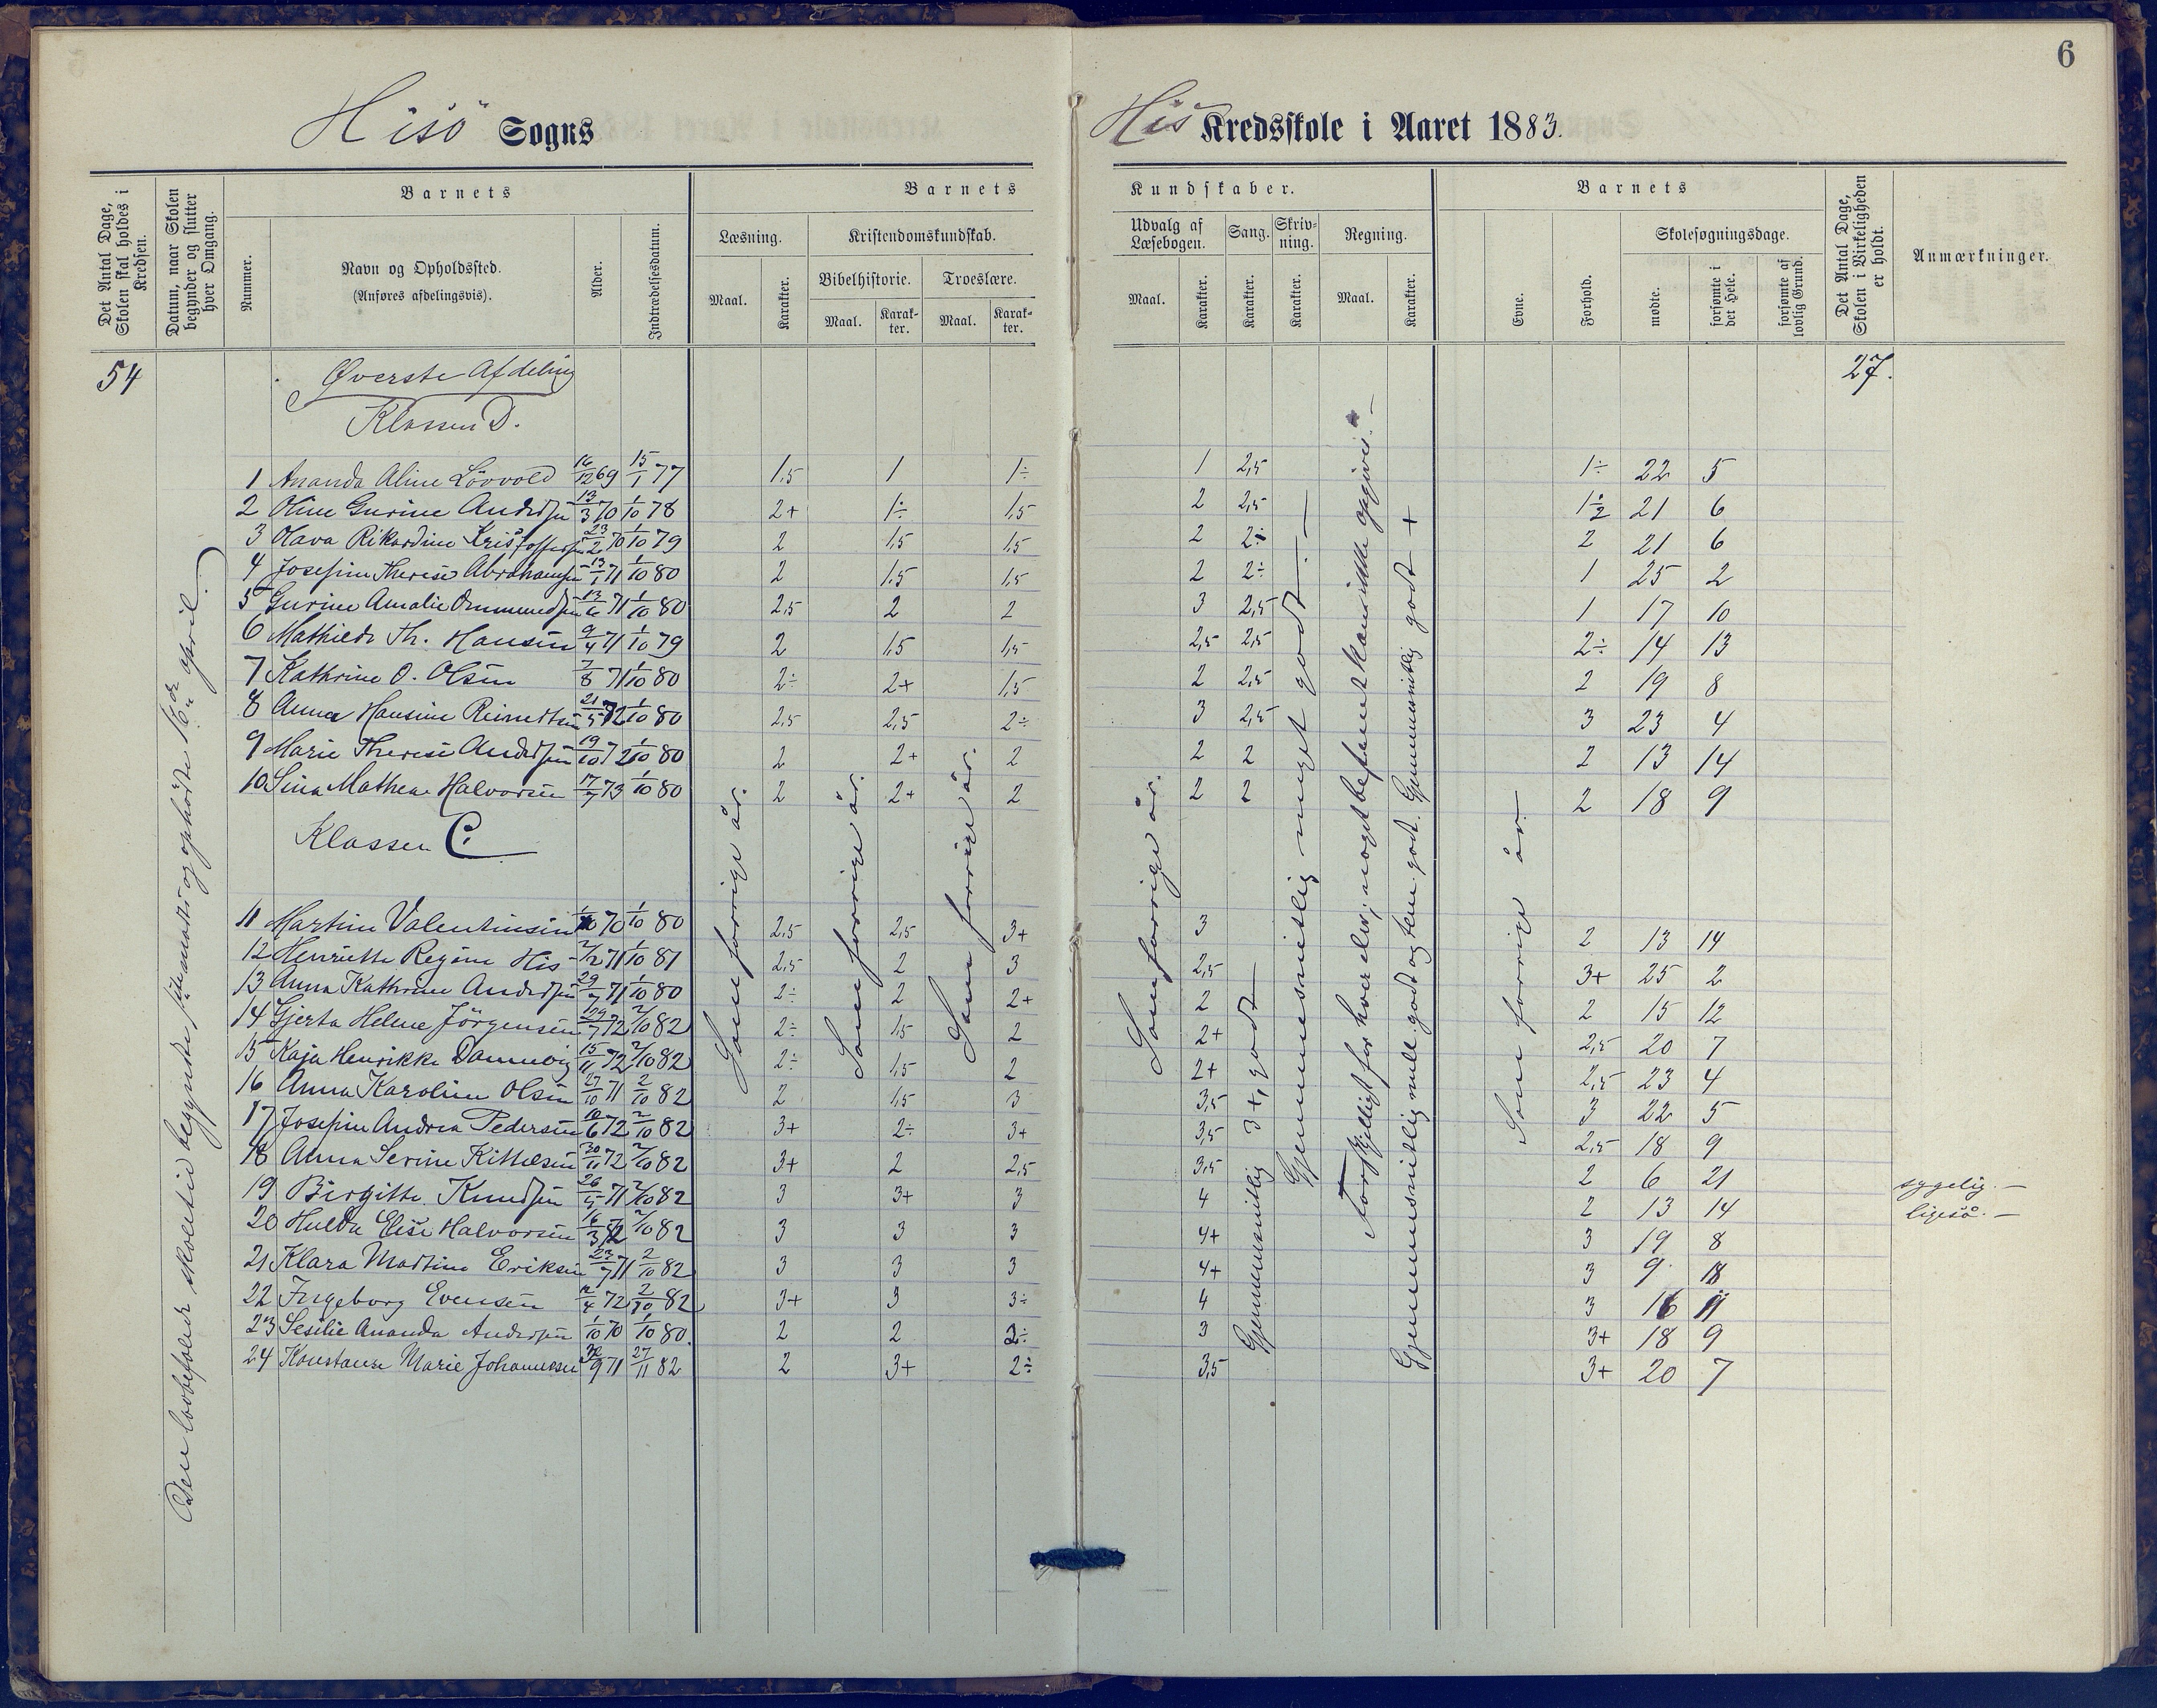 6
Hisö Sogns His Kredsskole i Aaret 1883.
Det Antal Dage, Skolen skal holdes i Kredsen.
Datum, naar Skolen begynder og slutter hver Omgang.
Barnets
Nummer.
Navn og Opholdssted.
(Anføres afdelingsvis).
Alder.
Indtrædelsesdatum.
Barnets Kundskaber.
Læsning.
Maal. Karakter.
Kristendomskundskab.
Bibelhistorie. Troeslære.
Maal. Karakter. Maal. Karakter.
Udvalg af Læsebogen.
Maal. Karakter.
Sang. Karakter.
Skrivning. Karakter.
Regning.
Maal. Karakter.
Barnets
Evne. Forhold.
Skolesøgningsdage.
mødte. forsømte i det Hele. forsømte af lovlig Grund.
Det Antal Dage, Skolen i Virkeligheden er holdt.
Anmærkninger.
54 Øverste Afdeling 27.
Klassen D.
1 Ananda Aline Lövvold 16/12 69 15/1 77 1,5 1 1÷ 1 2,5 1÷ 22 5
2 Gurine Andersen 13/3 70 1/10 78 2+ 1÷ 1,5 2 2,5 21 6
3 Hava Rikardine Kristoffersen 23/2 70 1/10 79 2 1,5 1,5 2 2÷ 2 21 6
4 Josefine Therese Abrahamsen 13/1 71 1/10 80 2 1,5 1,5 2 2÷ 1 25 2
5 Gurine Amalie Ommundsen 13/6 71 1/10 80 2,5 2 2 3 2,5 1 17 10
6 Mathilde Th. Hansen 9/4 71 1/10 79 2 1,5 1,5 2,5 2,5 2÷ 14 13
7 Kathrine O. Olsen 7/8 71 1/10 80 2÷ 2+ 1,5 2 2,5 2 19 8
8 Anna Hansine Reinertsen 21/5 72 1/10 80 2,5 2,5 2÷ 3 2,5 3 23 4
9 Marie Therese Andersen 19/10 72 1/10 80 2 2+ 2 2 2 2 13 14
10 Sina Mathea Halvorsen 17/7 73 1/10 80 2 2+ 2 2 2 2 18 9
Klassen C.
11 Martine Valentinsen 70 1/10 80 2,5 2,5 3+ 3 2 13 14
12 Henriette Regine His 2/2 71 1/10 81 2,5 2 3 2,5 3+ 25 2
13 Anna Kathrine Andersen 29/7 71 1/10 80 2÷ 2 2+ 2 2 15 12
14 Gjerta Helene Jörgensen 29/7 72 2/10 82 2÷ 1,5 2 2+ 2,5 20 7
15 Kaja Henrikke Dannevig 15/11 72 2/10 82 2÷ 1,5 2 2+ 2,5 23 4
16 Anna Karoline Olsen 27/10 71 2/10 82 2 1,5 3 3,5 3 22 5
17 Josefine Andrea Pedersen 10/6 72 2/10 82 3+ 2÷ 3+ 3,5 2,5 18 9
18 Anna Serine Kittelsen 30/11 72 2/10 82 3+ 2 2,5 3,5 2 6 21 sygelig. —
19 Birgitte Knudsen 26/5 71 2/10 82 3 3+ 3 4 2 13 14 ligeså. —
20 Hulda Elise Halvorsen 16/3 72 2/10 82 3 3 3 4+ 3 19 8
21 Klara Martine Eriksen 23/7 71 2/10 82 3 3 3 4+ 3 9 18
22 Ingeborg Evensen 12/4 72 2/10 82 3+ 3 3÷ 4 3 16 11
23 Sesilie Ananda Andersen 1/10 70 1/10 80. 2 2 2÷ 3 3+ 18 9
24 Konstanse Marie Johannessen 30/9 71 27/11 82 2 3+ 2÷ 3,5 3+ 20 7
Den lovbefalede skoletid begyndte januar og ophörte 16de april.
Som forrige år.
Som forrige år.
Som forrige år.
Som forrige år.
Gjennemsnitlig 3+, godt —
Gjennemsnitlig meget godt. —
Forskjelligt for hver elev; noget bestemt kan ikke opgives. —
Gjennemsnitlig mell. godt og tem. godt. Gjennemsnitlig godt +
Som forrige år —